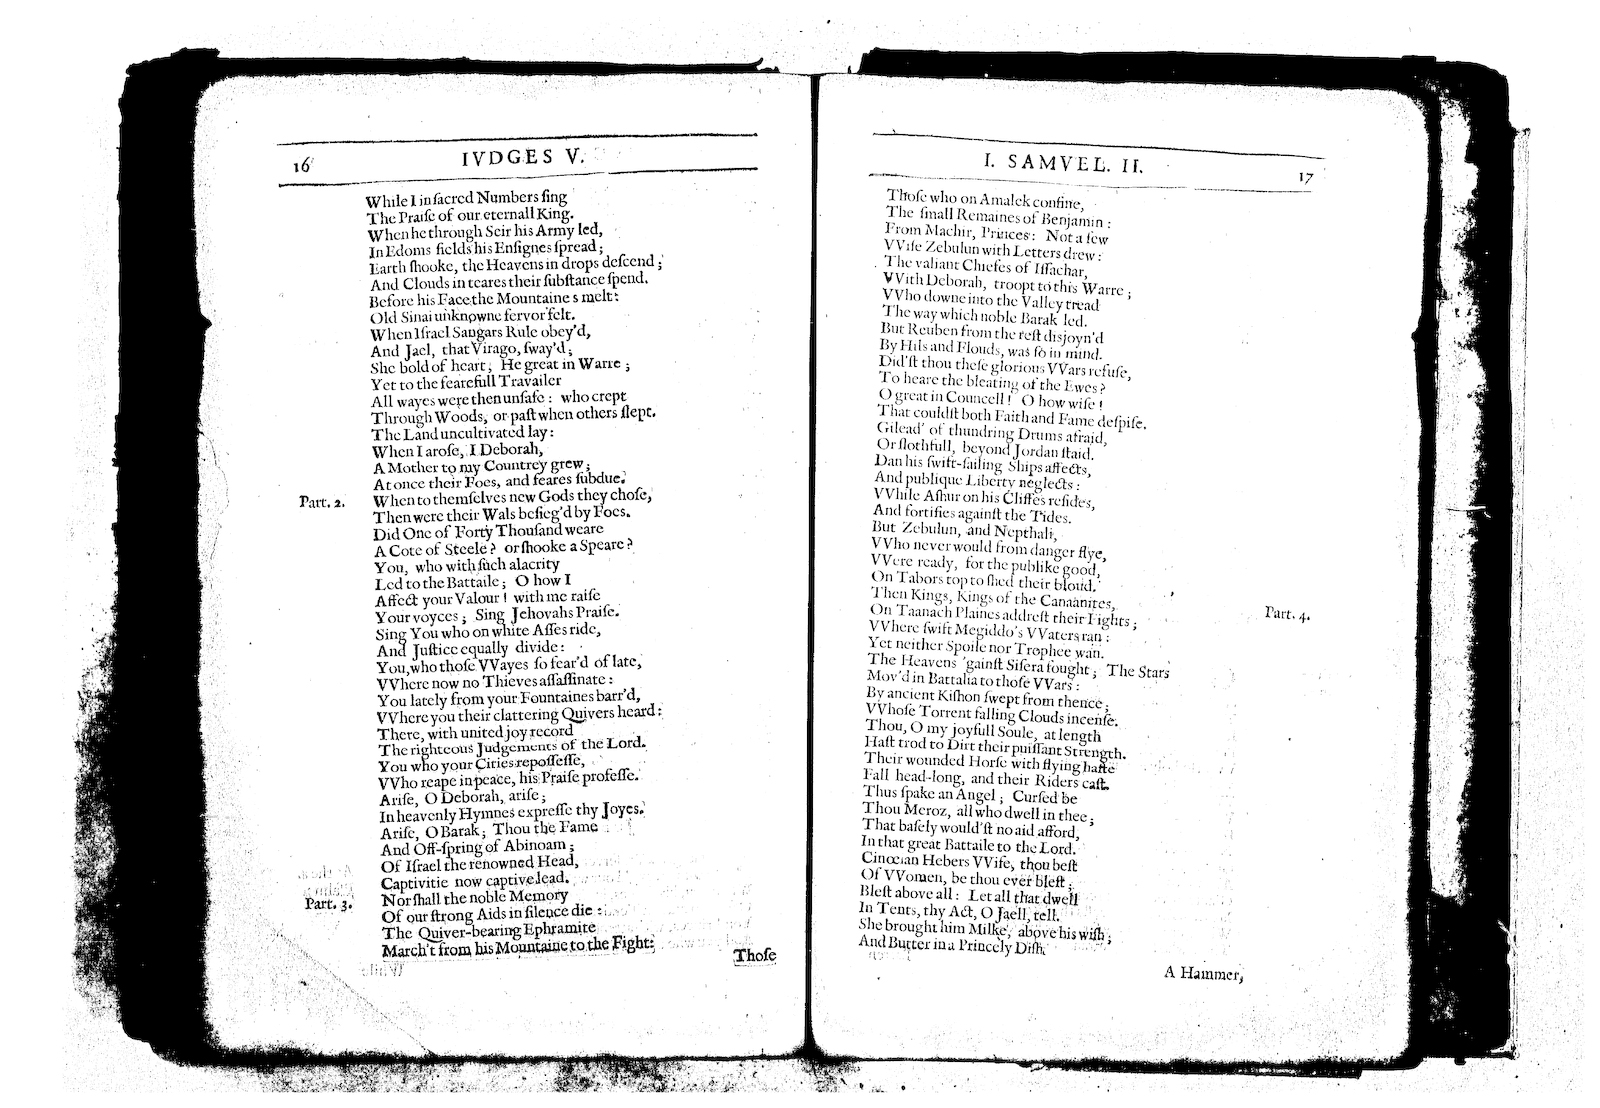 16
IVDGES V.
While I in ſacred Numbers ſing
The Praiſe of our eternall King.
When he through Seir his Army led,
In Edoms fields his Enſignes ſpread;
Earth ſhooke, the Heavens in drops deſcend;
And Clouds in teares their ſubſtance ſpend.
Before his Face the Mountaines melt:
Old Sinai unknowne fervor felt.
When Iſrael Sangars Rule obey'd,
And Jael, that Virago, ſway'd;
She bold of heart; He great in Warre;
Yet to the fearefull Travailer
All wayes were then unſafe: who crept
Through Woods, or paſt when others ſlept.
The Land uncultivated lay:
When I aroſe, I Deborah,
A Mother to my Countrey grew;
At once their Foes, and feares ſubdue.
Part. 2. When to themſelves new Gods they choſe,
Then were their Wals beſieg'd by Foes.
Did One of Forty Thouſand weare
A Cote of Steele? or ſhooke a Speare?
You, who with ſuch alacrity
Led to the Battaile; O how I
Affect your Valour! with me raiſe
Your voyces; Sing Jehovahs Praiſe.
Sing You who on white Aſſes ride,
And Juſtice equally divide:
You, who thoſe VVayes ſo fear'd of late,
VVhere now no Thieves aſſaſſinate:
You lately from your Fountaines barr'd,
VVhere you their clattering Quivers heard:
There, with united joy record
The righteous Judgements of the Lord.
You who your Cities repoſſeſſe,
VVho reape in peace, his Praiſe profeſſe.
Ariſe, O Deborah, ariſe;
In heavenly Hymnes expreſſe thy Joyes.
Ariſe, O Barak; Thou the Fame
And Off-ſpring of Abinoam;
Of Iſrael the renowned Head,
Captivitie now captive lead.
Part. 3. Nor ſhall the noble Memory
Of our ſtrong Aids in ſilence die:
The Quiver-bearing Ephramite
March't from his Mountaine to the Fight:
Thoſe
I. SAMVEL. II.
17
Thoſe who on Amalek confine,
The ſmall Remaines of Benjamin:
From Machir, Princes: Not a few
VViſe Zebulun with Letters drew:
The valiant Chiefes of Iſſachar,
VVith Deborah, troopt to this Warre;
VVho downe into the Valley tread
The way which noble Barak led.
But Reuben from the reſt disjoyn'd
By Hils and Flouds, was ſo in mind.
Did'ſt thou theſe glorious VVars refuſe,
To heare the bleating of the Ewes?
O great in Councell! O how wiſe!
That couldſt both Faith and Fame deſpiſe.
Gilead' of thundring Drums afraid,
Or ſlothfull, beyond Jordan ſtaid.
Dan his ſwift-ſailing Ships affects,
And publique Liberty neglects:
VVhile Aſhur on his Cliffes reſides,
And fortifies againſt the Tides.
But Zebulun, and Nepthali,
VVho never would from danger flye,
VVere ready, for the publike good,
On Tabors top to ſhed their bloud.
Then Kings, Kings of the Canaanites,
On Taanach Plaines addreſt their Fights; Part. 4.
VVhere ſwift Megiddo's VVaters ran:
Yet neither Spoile nor Trophee wan.
The Heavens 'gainſt Siſera fought; The Stars
Mov'd in Battalia to thoſe VVars:
By ancient Kiſhon ſwept from thence;
VVhoſe Torrent falling Clouds incenſe.
Thou, O my joyfull Soule, at length
Haſt trod to Dirt their puiſſant Strength.
Their wounded Horſe with flying haſte
Fall head-long, and their Riders caſt.
Thus ſpake an Angel; Curſed be
Thou Meroz, all who dwell in thee;
That baſely would'ſt no aid afford,
In that great Battaile to the Lord.
Cinœian Hebers VVife, thou beſt
Of VVomen, be thou ever bleſt;
Bleſt above all: Let all that dwell
In Tents, thy Act, O Jaell, tell.
She brought him Milke, above his wiſh;
And Butter in a Princely Diſh.
A Hammer,